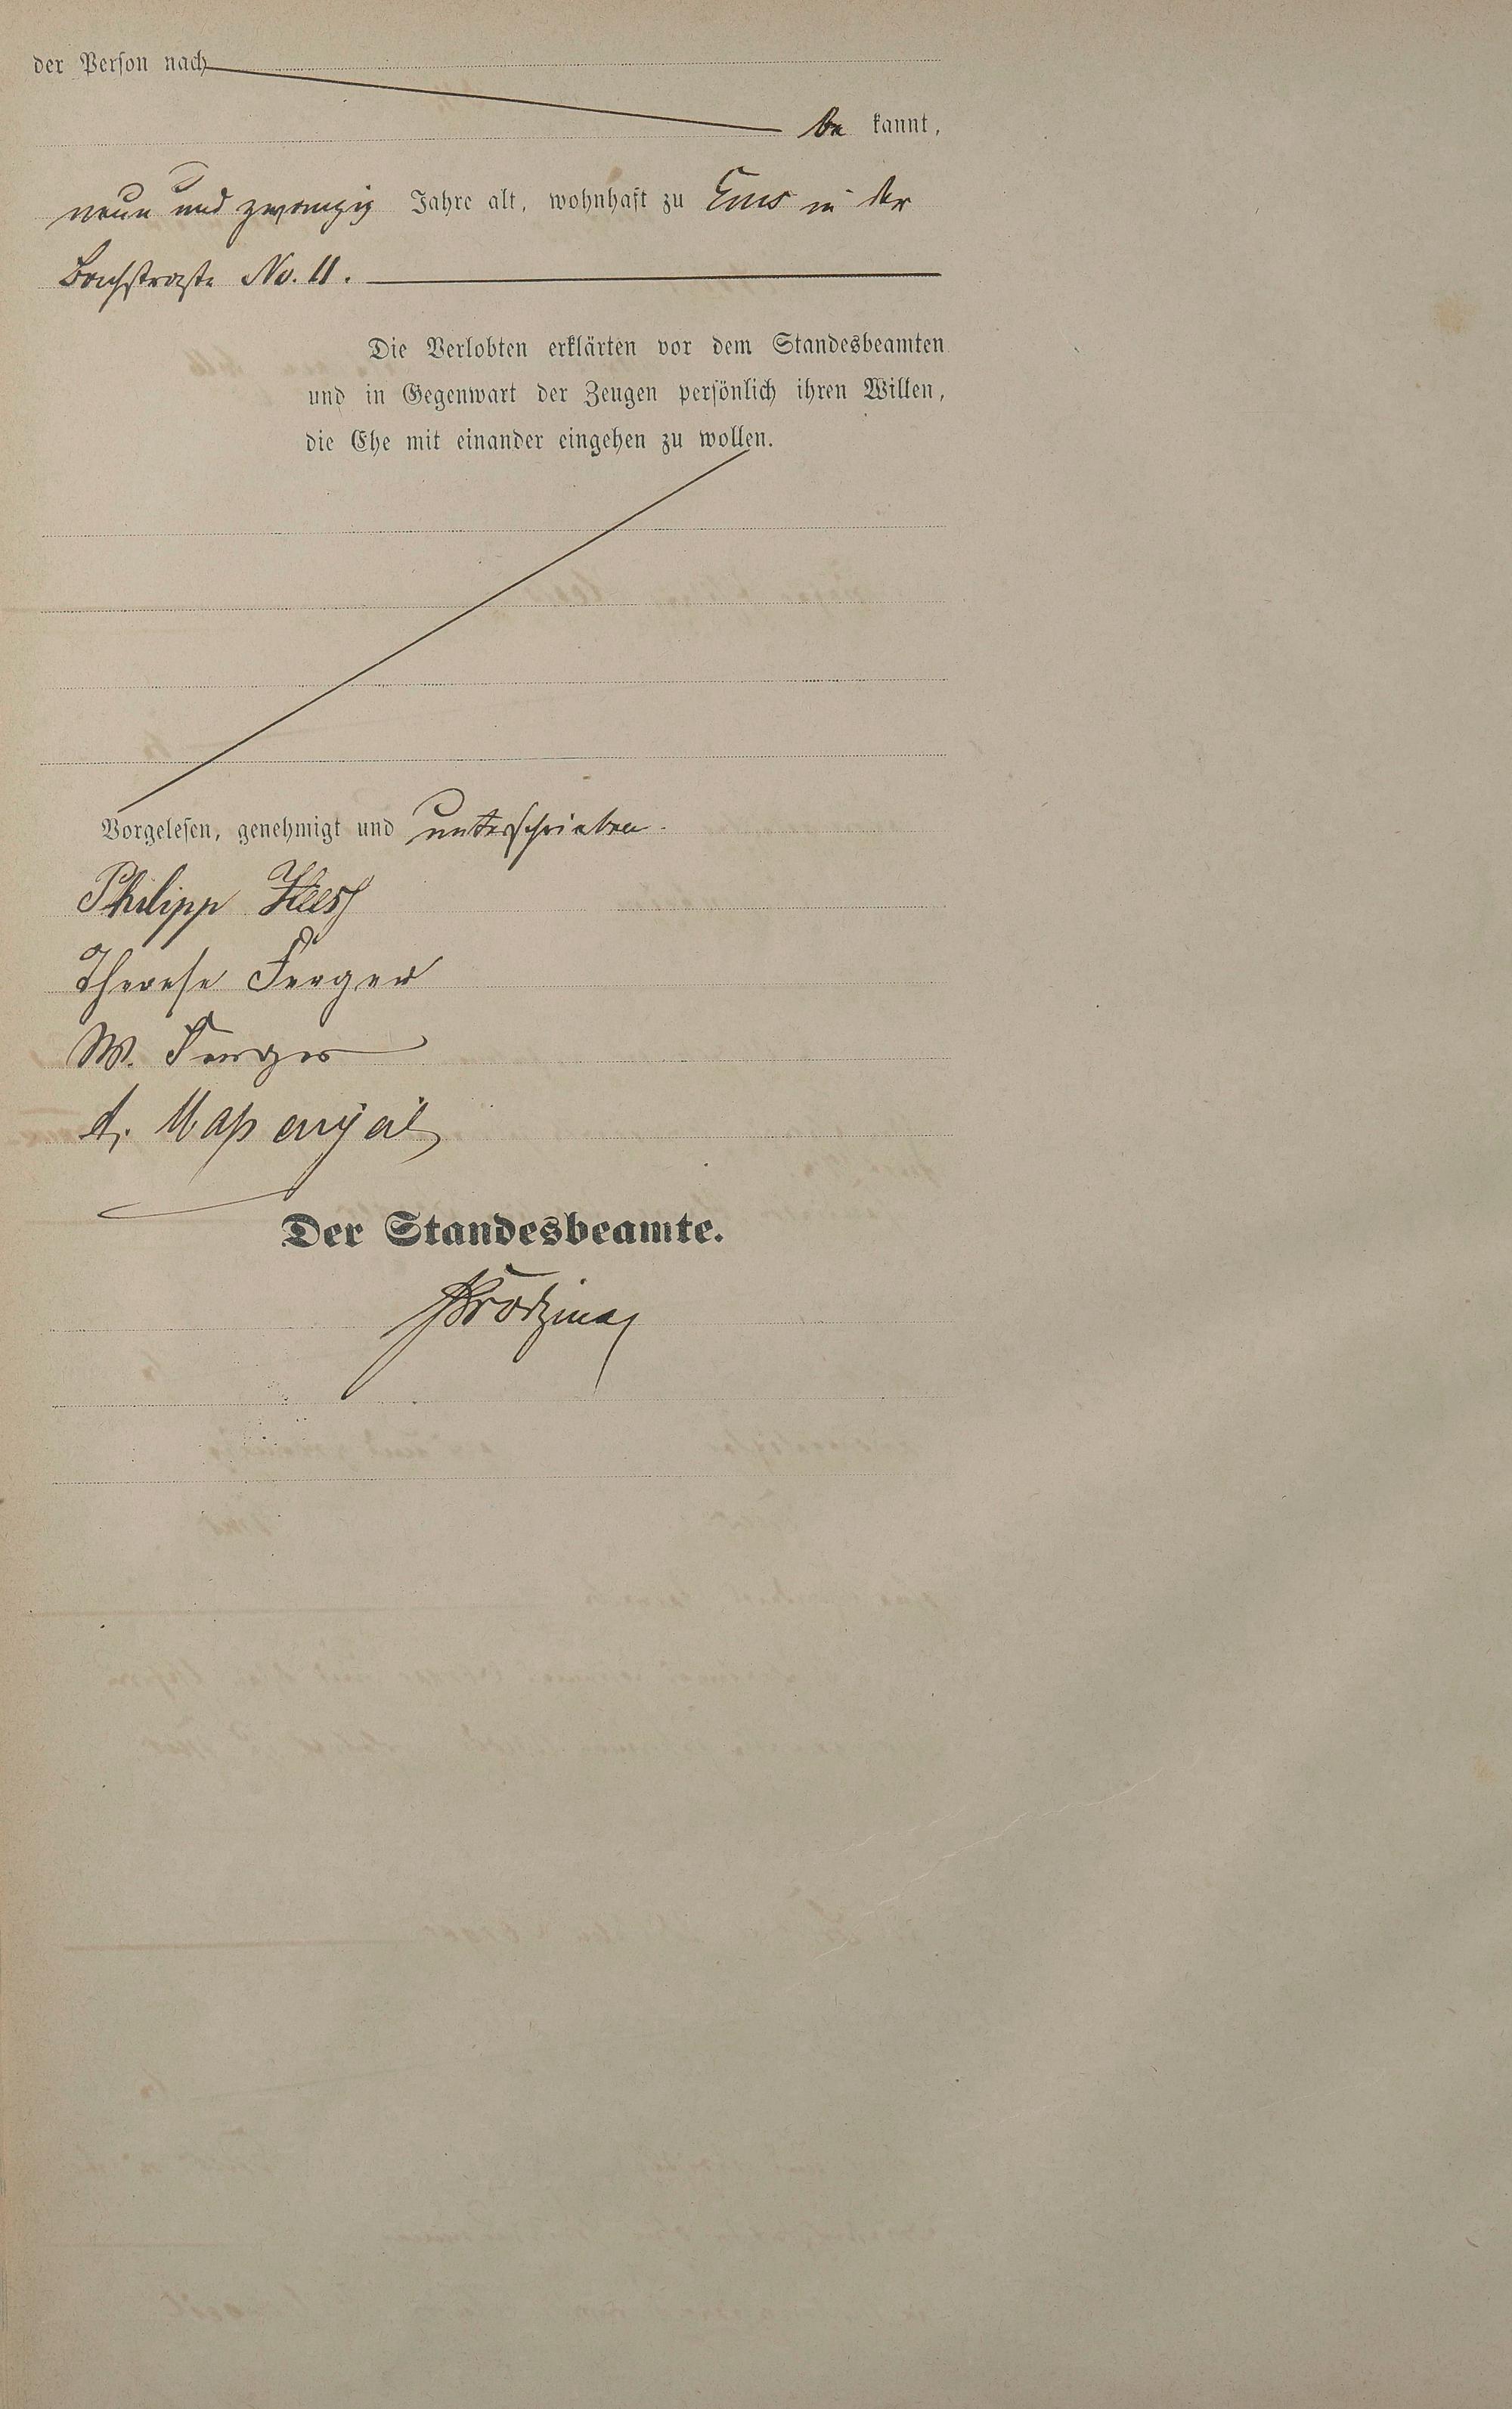 der Person nach
be kannt,
neun und zwanzig Jahre alt, wohnhaft zu Ems in der
Bachstraße No. 11.
Die Verlobten erklärten vor dem Standesbeamten
und in Gegenwart der Zeugen persönlich ihren Willen,
die Ehe mit einander eingehen zu wollen.
Vorgelesen, genehmigt und unterschrieben.
Philipp
Therese Ferger
W. Ferger
A.
Der Standesbeamte.